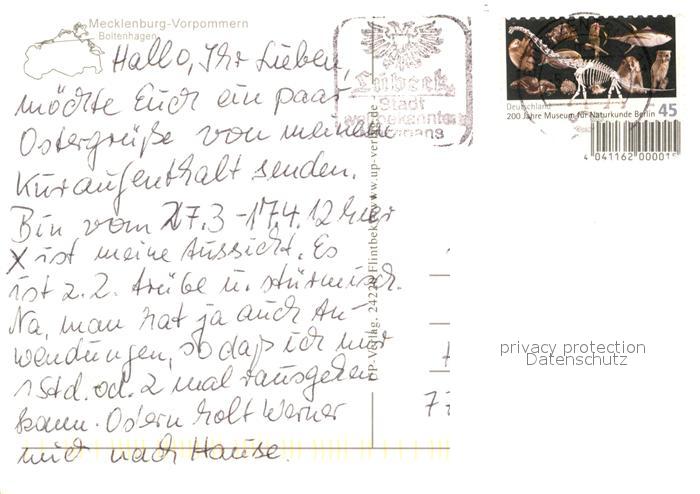 Mecklenburg-Vorpommern
Boltenhagen
Hallo, Ihr Lieben,
möchte Euch ein paar
Ostergrüße von meinem
Kuraufenthalt senden.
Bin vom 27.3-17.4.12 hier
X ist meine Aussicht. Es
ist z.Z. trübe u. stürmisch.
Na, man hat ja auch An-
wendungen, so daß ich nur
1 Std. od. 2 mal rausgehen
kann. Ostern holt Werner
mich nach Hause.
Lübeck
Stadt
weltbekannten
UP-Verlag. 24220 Flintbek www.up-verlag.de
Deutschland
200 Jahre Museum für Naturkunde Berlin
45
4 041162 000015
77
privacy protection
Datenschutz